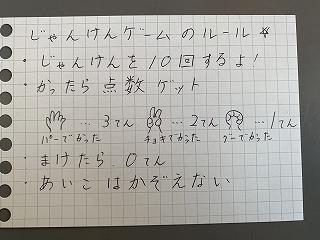 じゃんけんゲームのルール
・じゃんけんを10回するよ!
・かったら点数ゲット
…3てん …2てん …1てん
パーでかった チョキでかった グーでかった
・まけたら0てん
・あいこはかぞえない